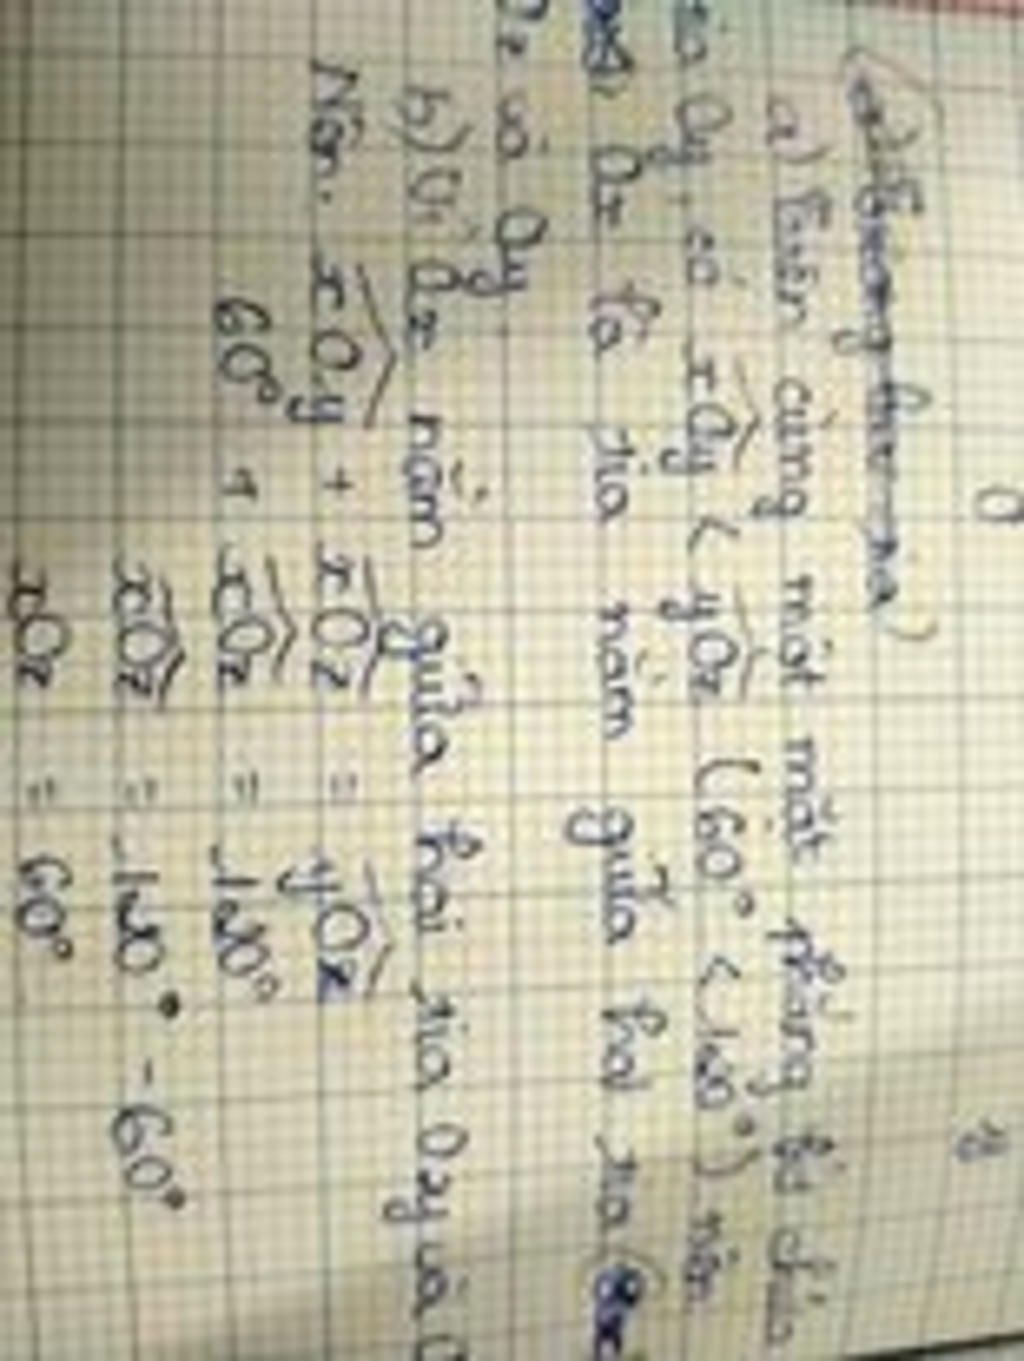 O
a) Trên cùng một mặt phẳng bờ chứa
tia Oy, có xOy < yOz (60° < 120°) nên
Ox là tia nằm giữa hai tia
Oz và Oy
b) Vì Ox nằm giữa hai tia Oy và
Nên. xOy + xOz = yOz
60° + xOz = 120°
xOz = 120° - 60°
xOz = 60°